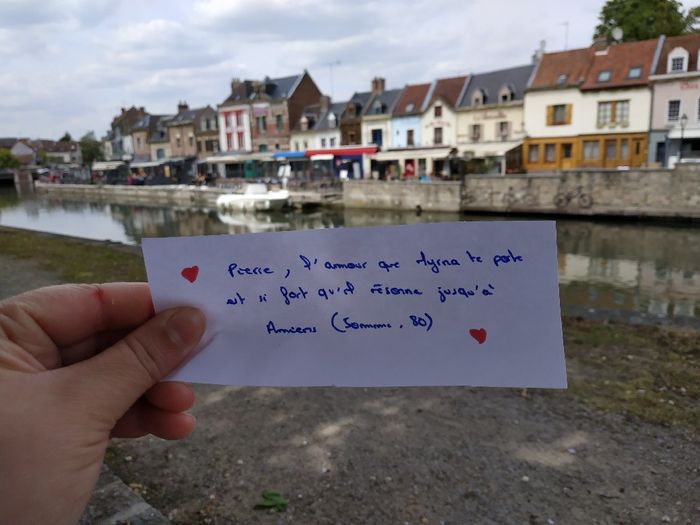 Pierre, l'amour que Myrna te porte
est si fort qu'il résonne jusqu'à
Amiens (Somme, 80)